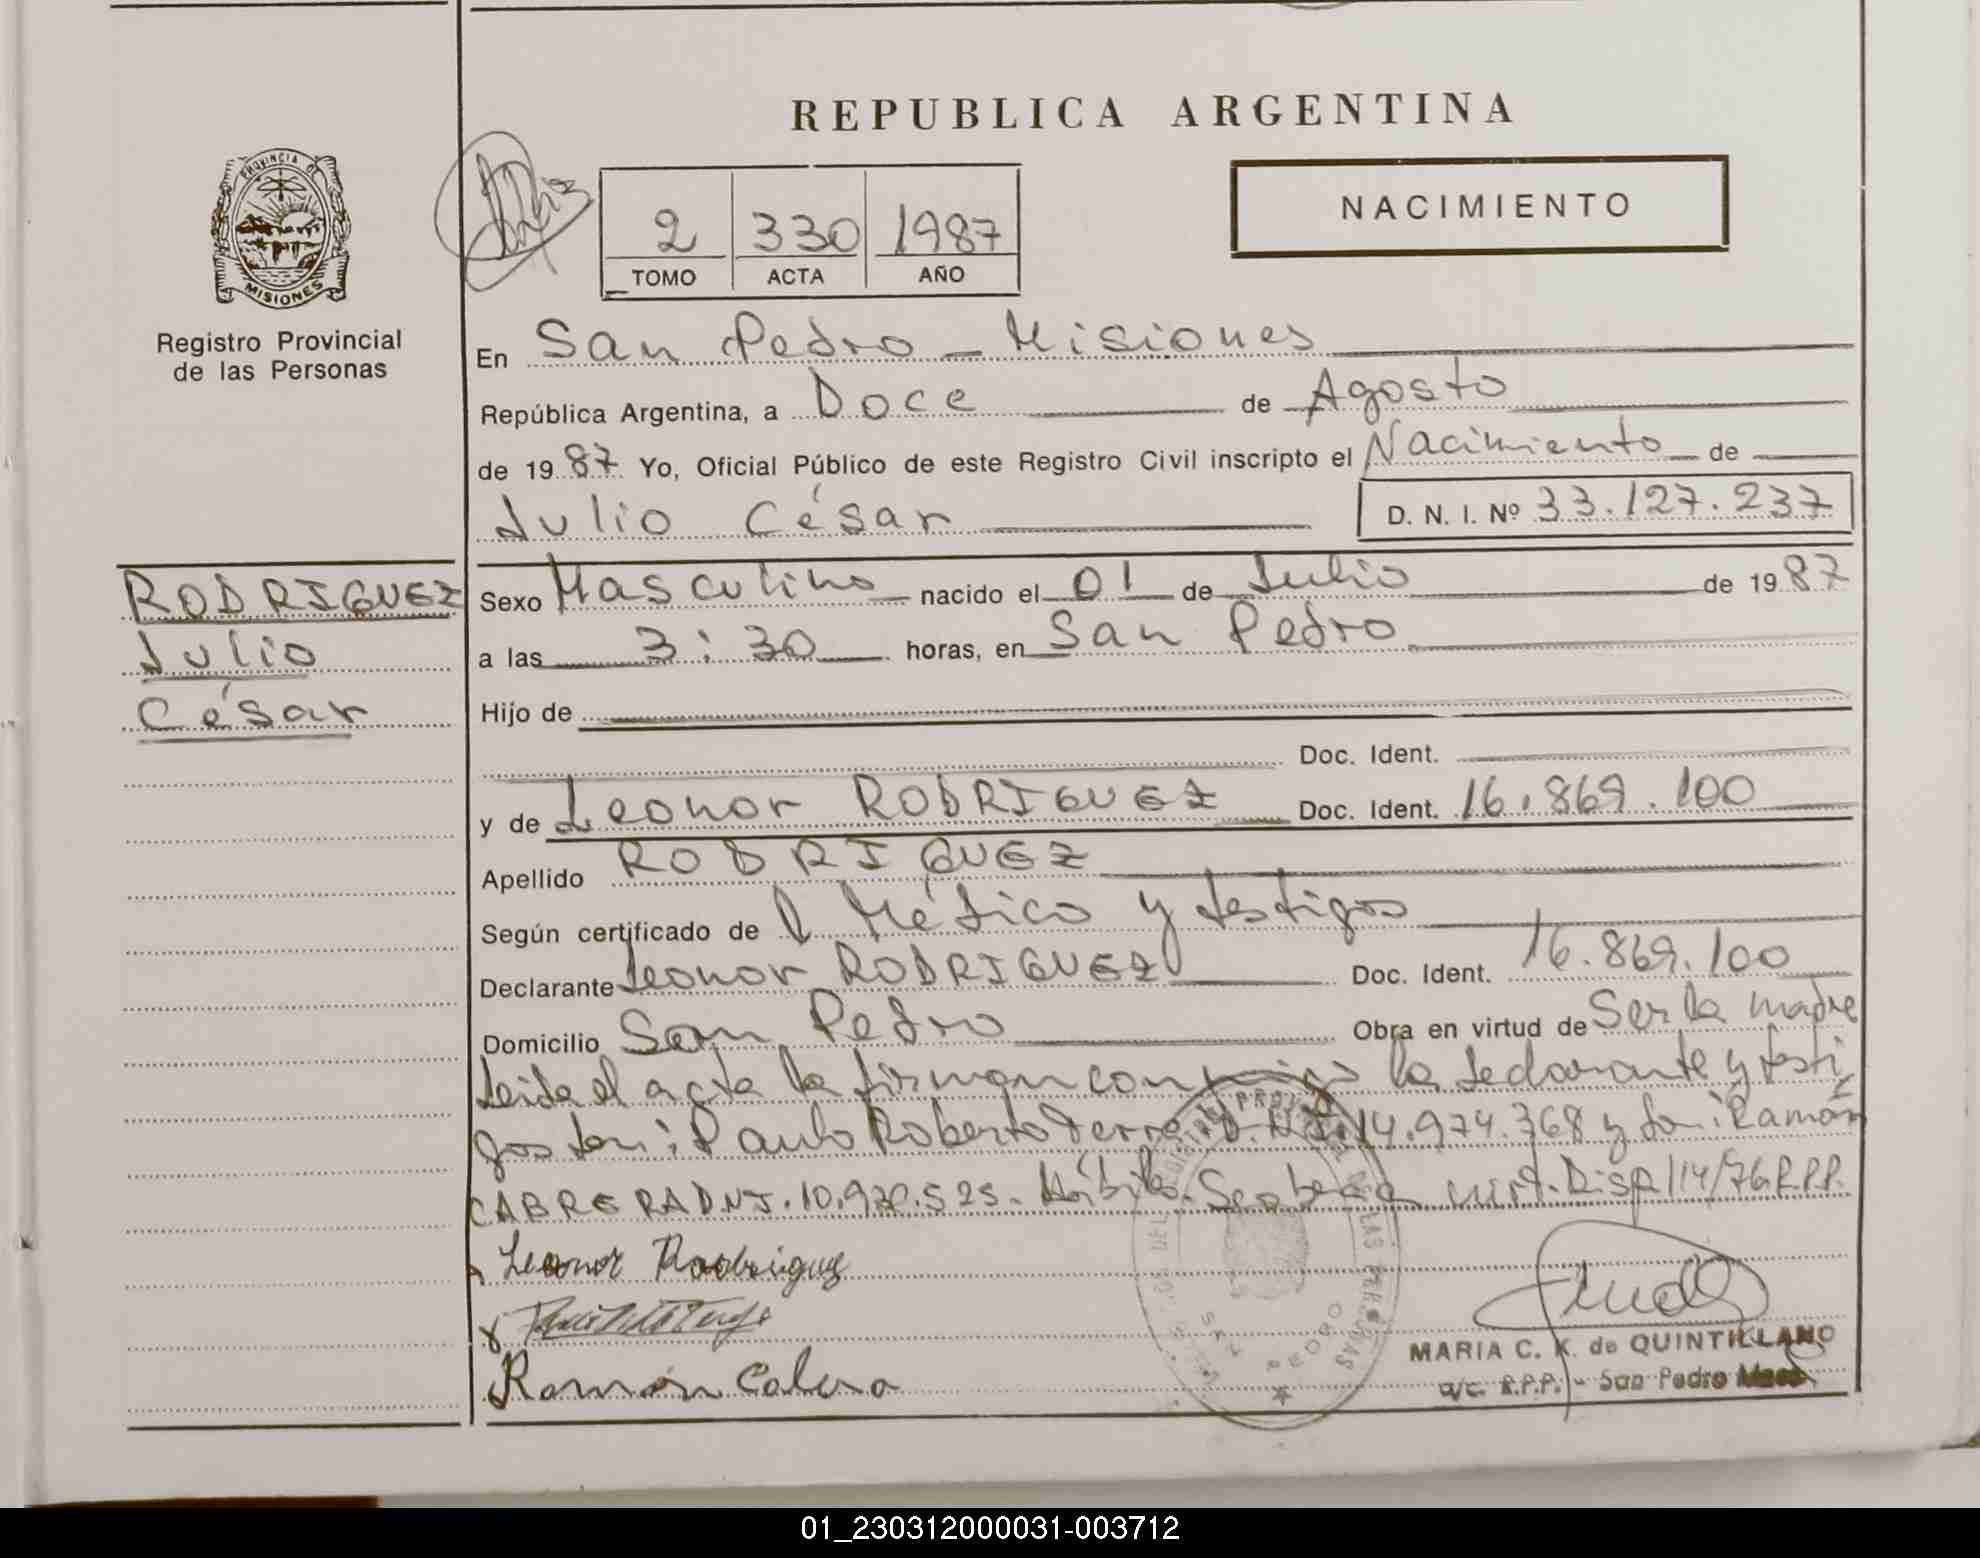 REPUBLICA ARGENTINA
NACIMIENTO
PROVINCIA DE
MISIONES
Registro Provincial
de las Personas
2 330 1987
TOMO ACTA AÑO
En San Pedro - Misiones
República Argentina, a Doce de Agosto
de 1987 Yo, Oficial Público de este Registro Civil inscripto el Nacimiento de
Julio César D. N. I. Nº 33.127.237
RODRIGUEZ
Julio
César
Sexo Masculino nacido el 01 de Julio de 1987
a las 3:30 horas, en San Pedro
Hijo de
Doc. Ident.
y de Leonor RODRIGUEZ Doc. Ident. 16.869.100
Apellido RODRIGUEZ
Según certificado de l Médico y testigos
Declarante Leonor RODRIGUEZ Doc. Ident. 16.869.100
Domicilio San Pedro Obra en virtud de Ser la madre
Leida el acta la firman conmigo la declarante y testi
gos Paulo Roberto 14.974.368 y Ramón
CABRERA DNI. 10.930.525. Disp 114/76 R.P.P.
Leonor Rodriguez
Ramón
MARIA C. K. de QUINTILLANO
a/c. R.P.P. - San Pedro
SAN PEDRO
01_230312000031-003712